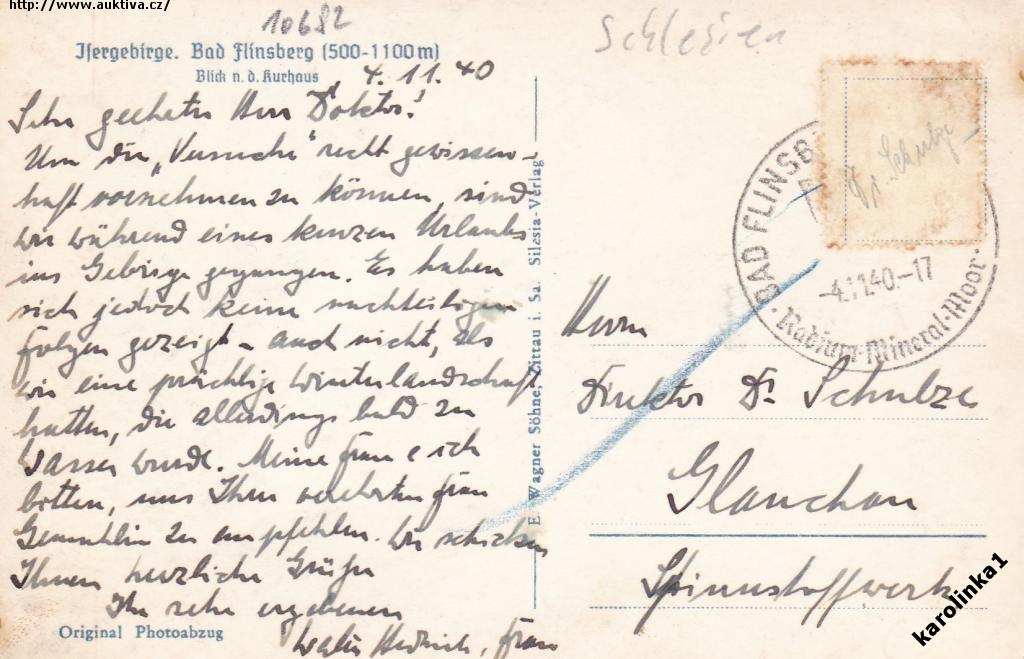 http://www.auktiva.cz/
10682
Schlesien
Isergebirge. Bad Flinsberg (500-1100m)
Blick n. d. Kurhaus
4. 11. 40
Sehr geehrter Herr Doktor!
Um die „Versuche" recht gewissen-
haft vornehmen zu können, sind
wir während eines kurzen Urlaubs
ins Gebirge gegangen. Es haben
sich jedoch keine nachteiligen
Folgen gezeigt – auch nicht, als
wir eine prächtige Winterlandschaft
hatten, die allerdings bald zu
Wasser wurde. Meine Frau & ich
bitten, uns Ihrer verehrten Frau
Gemahlin zu empfehlen. Wir schicken
Ihnen herzliche Grüße
Ihr sehr ergebenen
Hedrich, Frau
Original Photoabzug
E. Wagner Söhne, Zittau i. Sa. Silesia-Verlag
Schulze
BAD FLINSB
-4.11.40.-17
·Radium·Mineral·Moor·
Herrn
Direktor Dr. Schulze
Glauchau
Spinnstoffwerk
karolinka1